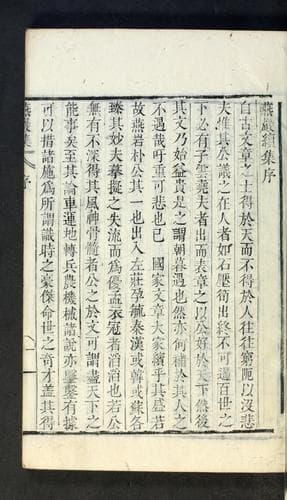 燕巖續集序
自古文章之士得於天而不得於人往往窮厄以沒悲
夫惟其公議之在人者如石壓筍出終不可遏百世之
下必有子雲堯夫者出而表章之以公好於天下然後
其文乃始益貴是之謂朝暮遇也然亦何補於其人之
不遇哉吁重可悲也已 國家文章大家續乎其盛若
故燕岩朴公其一也出入左莊孕毓秦漢或韓或蘇各
臻其妙夫摹擬之失流而爲優孟衣冠者滔滔也若公
無有不深得其風神骨髓者公之於文可謂盡天下之
能事矣至其論車運地轉兵農機械諸說亦鑿鑿有據
可以措諸施爲所謂識時之豪傑命世之奇才蓋其得
燕巖集 序